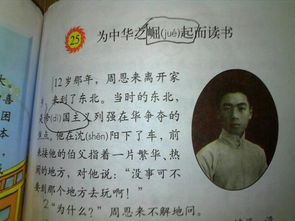 25
为中华之崛(jué)起而读书
12岁那年，周恩来离开家
来到了东北。当时的东北，
是帝(dì)国主义列强在华争夺的
焦点。他在沈(shěn)阳下了车，前
来接他的伯父指着一片繁华、热
闹的地方，对他说：“没事可不
要到那个地方去玩啊！”
“为什么？”周恩来不解地问。